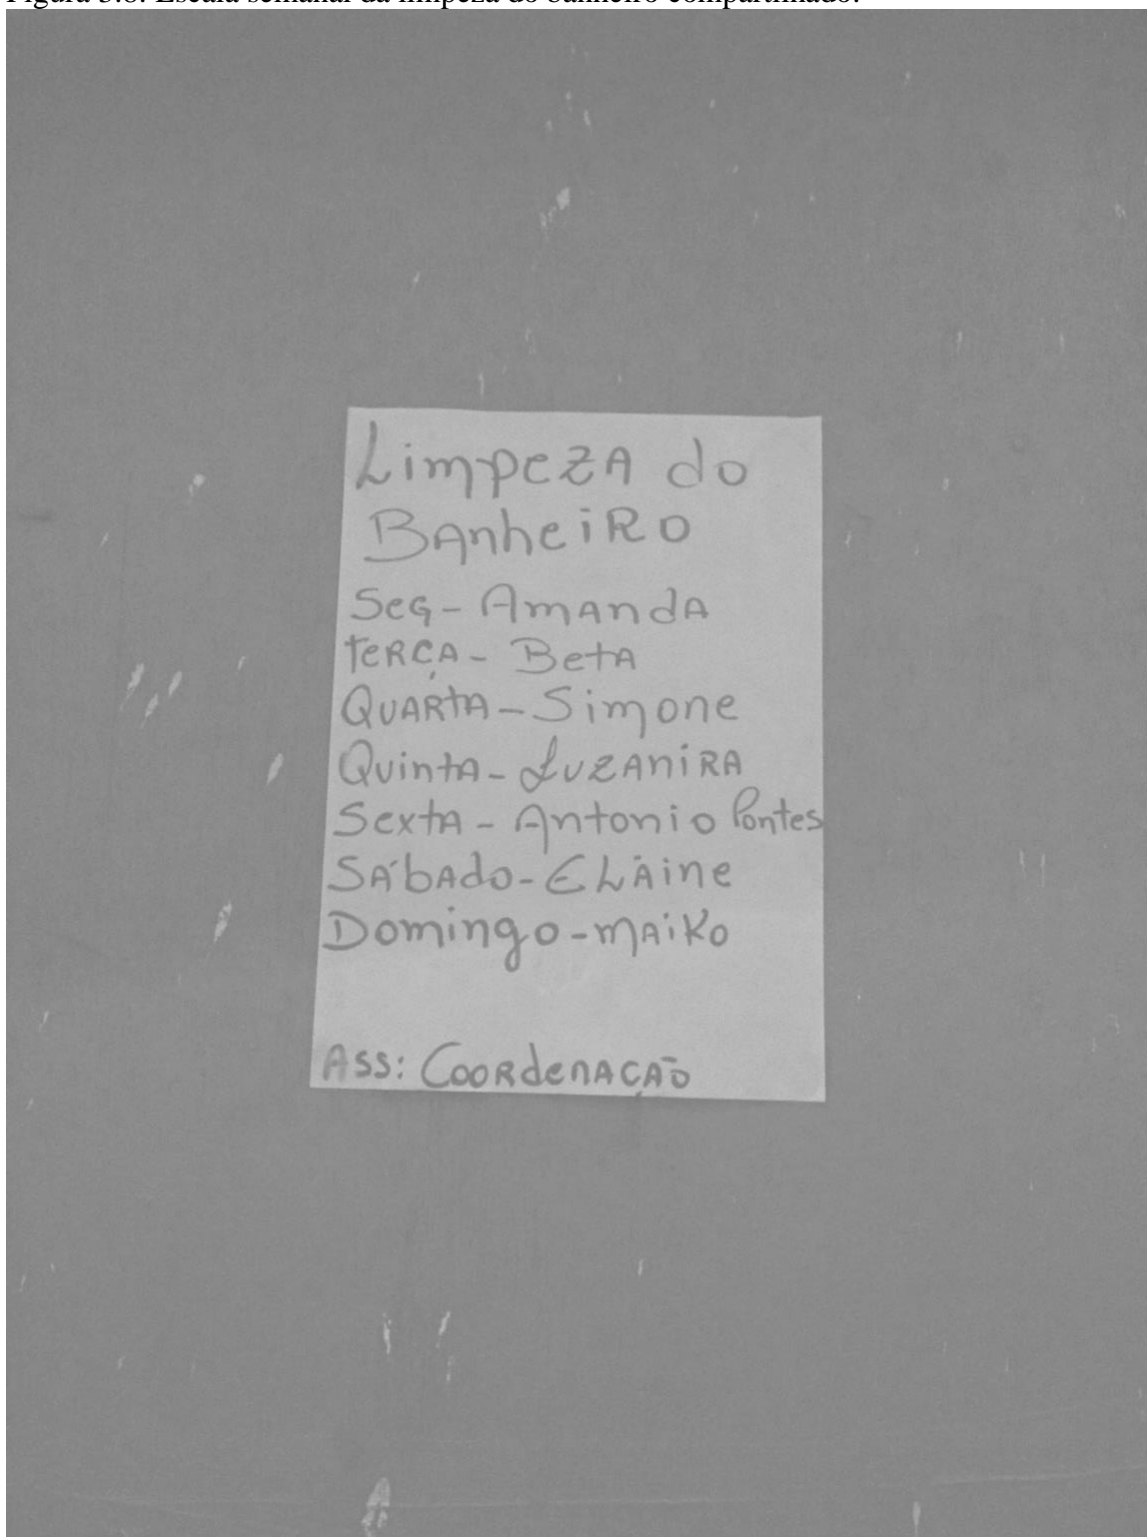 Figura 5.8: Escala semanal da limpeza do banheiro compartilhado.
Limpeza do
Banheiro
Seg - Amanda
Terça - Beta
Quarta - Simone
Quinta - Luzanira
Sexta - Antonio Pontes
Sábado - Elaine
Domingo - Maiko
Ass: Coordenação